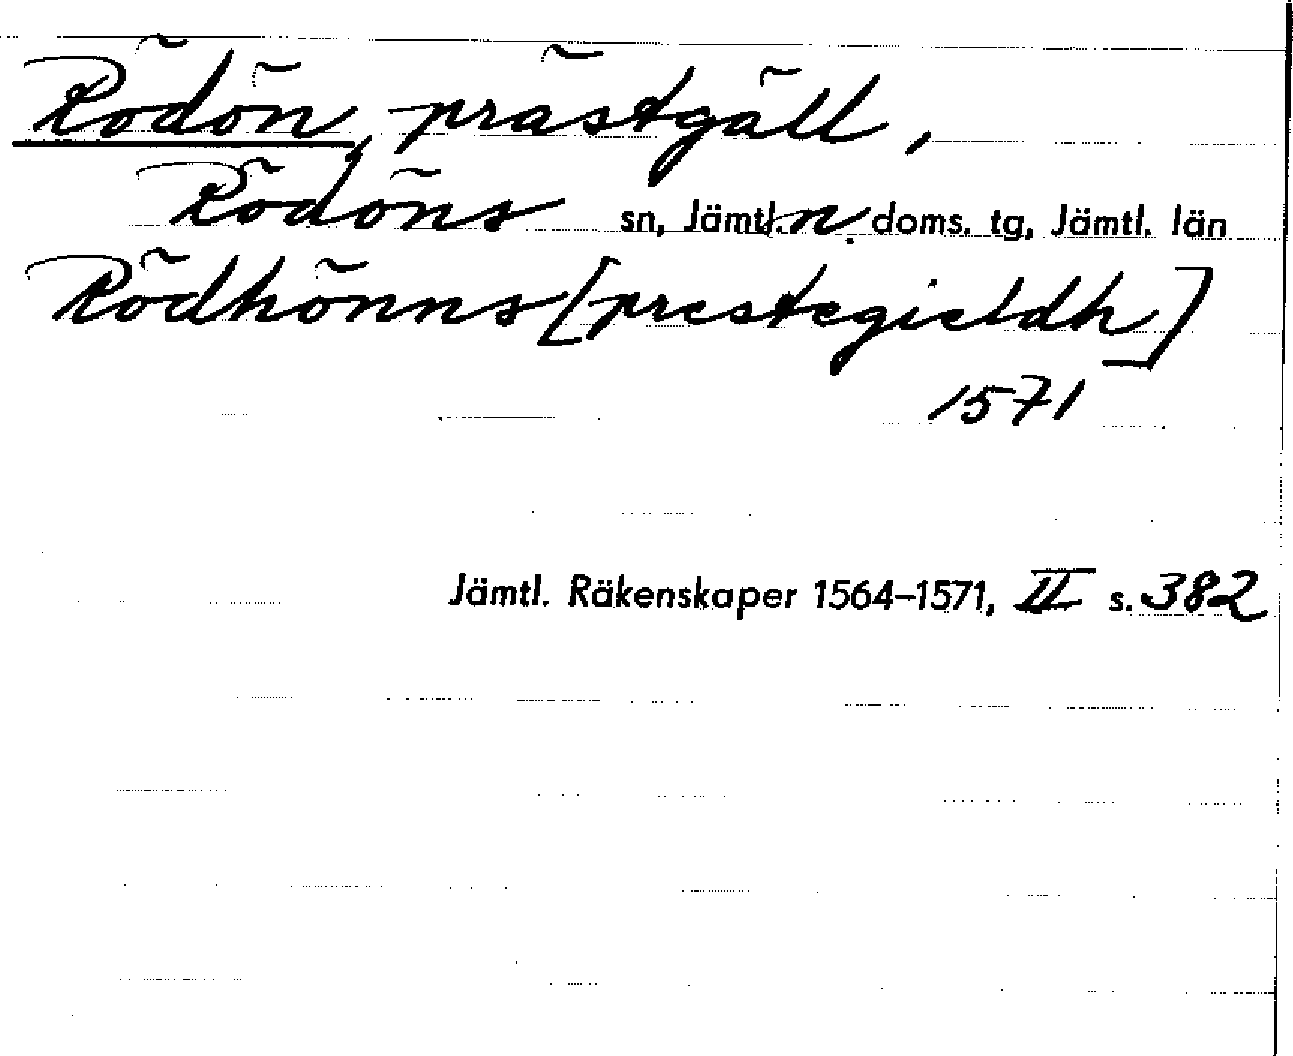 Rödön, prästgäll,
Rödöns sn, Jämtl. n. doms. tg, Jämtl. län
Rödhönns [prestegieldh]
1571
Jämtl. Räkenskaper 1564–1571, II s. 382